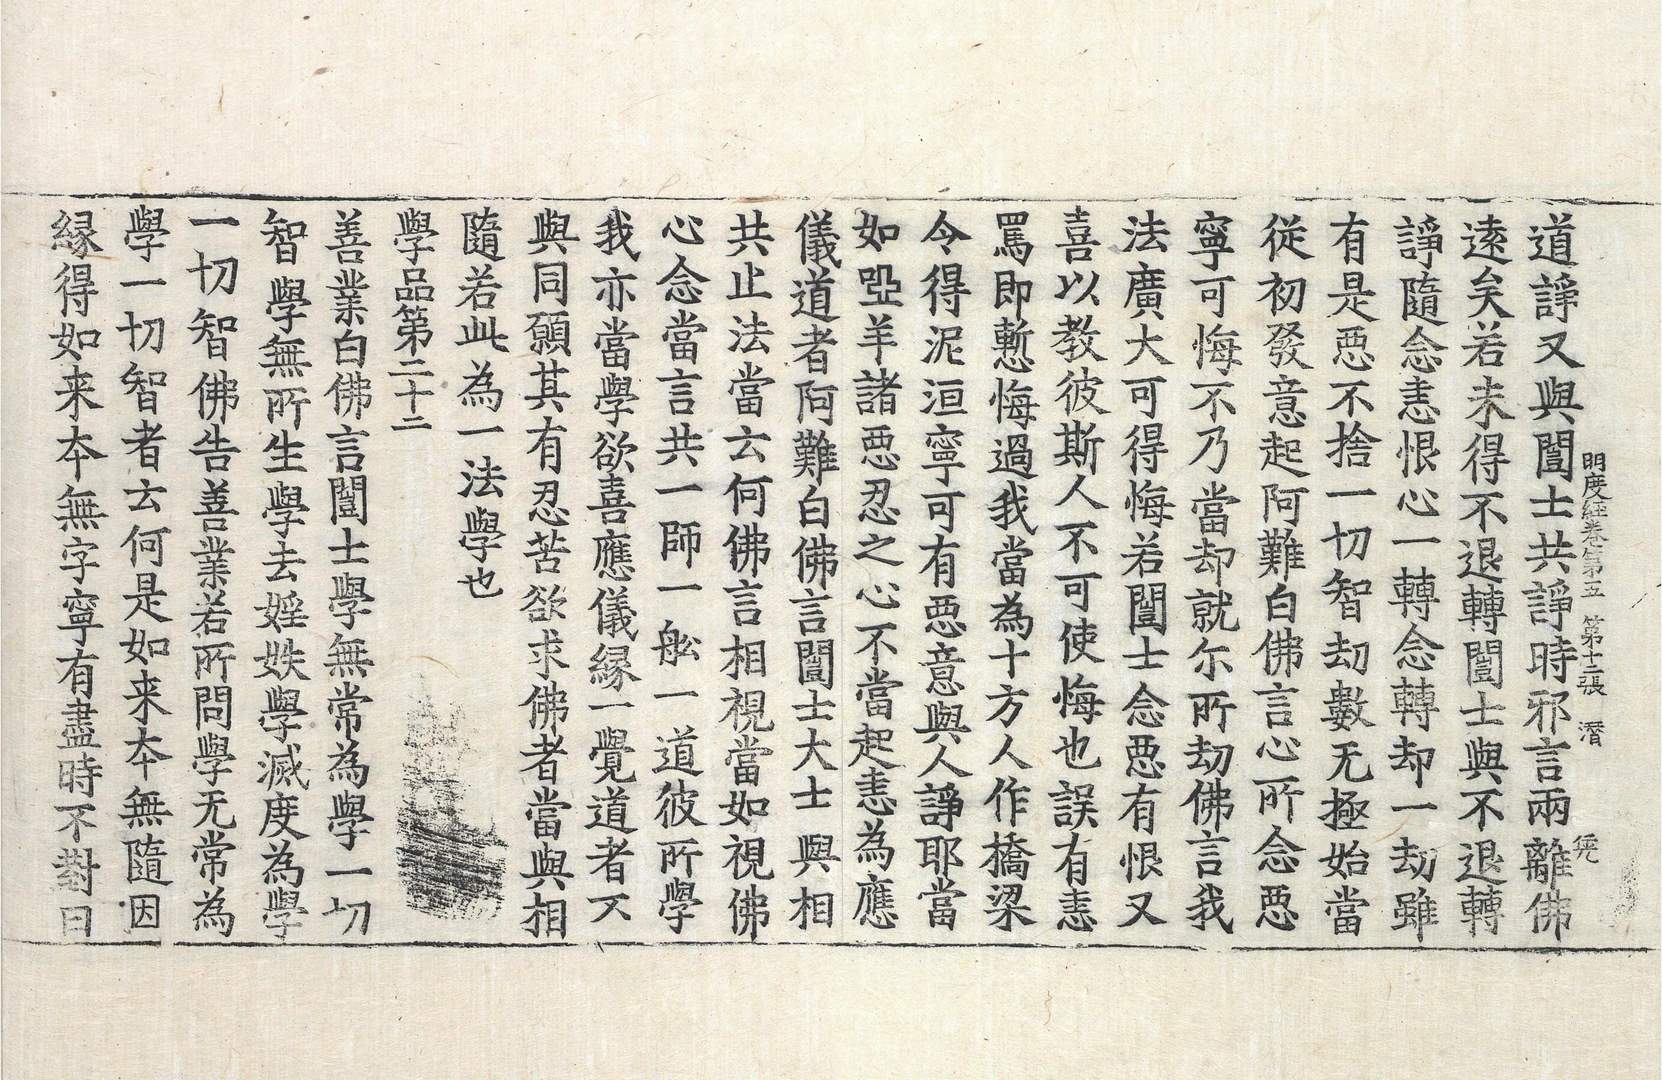 明度経卷第五 第十二張 潛
道諍又與闓士共諍時邪言兩離佛
遠矣若未得不退轉闓士與不退轉
諍隨念恚恨心一轉念轉却一劫雖
有是惡不捨一切智劫數无極始當
從初發意起阿難白佛言心所念惡
寧可悔不乃當却就尓所劫佛言我
法廣大可得悔若闓士念惡有恨又
喜以教彼斯人不可使悔也誤有恚
罵即慙悔過我當為十方人作橋梁
令得泥洹寧可有惡意與人諍耶當
如啞羊諸惡忍之心不當起恚為應
儀道者阿難白佛言闓士大士與相
共止法當云何佛言相視當如視佛
心念當言共一師一舩一道彼所學
我亦當學欲喜應儀縁一覺道者不
與同願其有忍苦欲求佛者當與相
隨若此為一法學也
學品第二十二
善業白佛言闓士學無常為學一切
智學無所生學去婬妷學滅度為學
一切智佛告善業若所問學无常為
學一切智者云何是如来夲無隨因
縁得如来夲無字寧有盡時不對曰